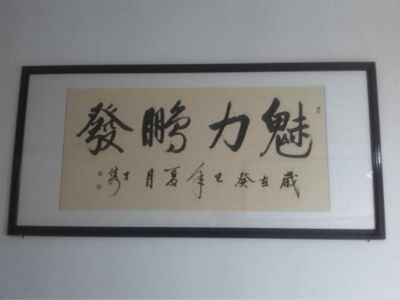 魅力鵬發
歲在癸巳年夏月